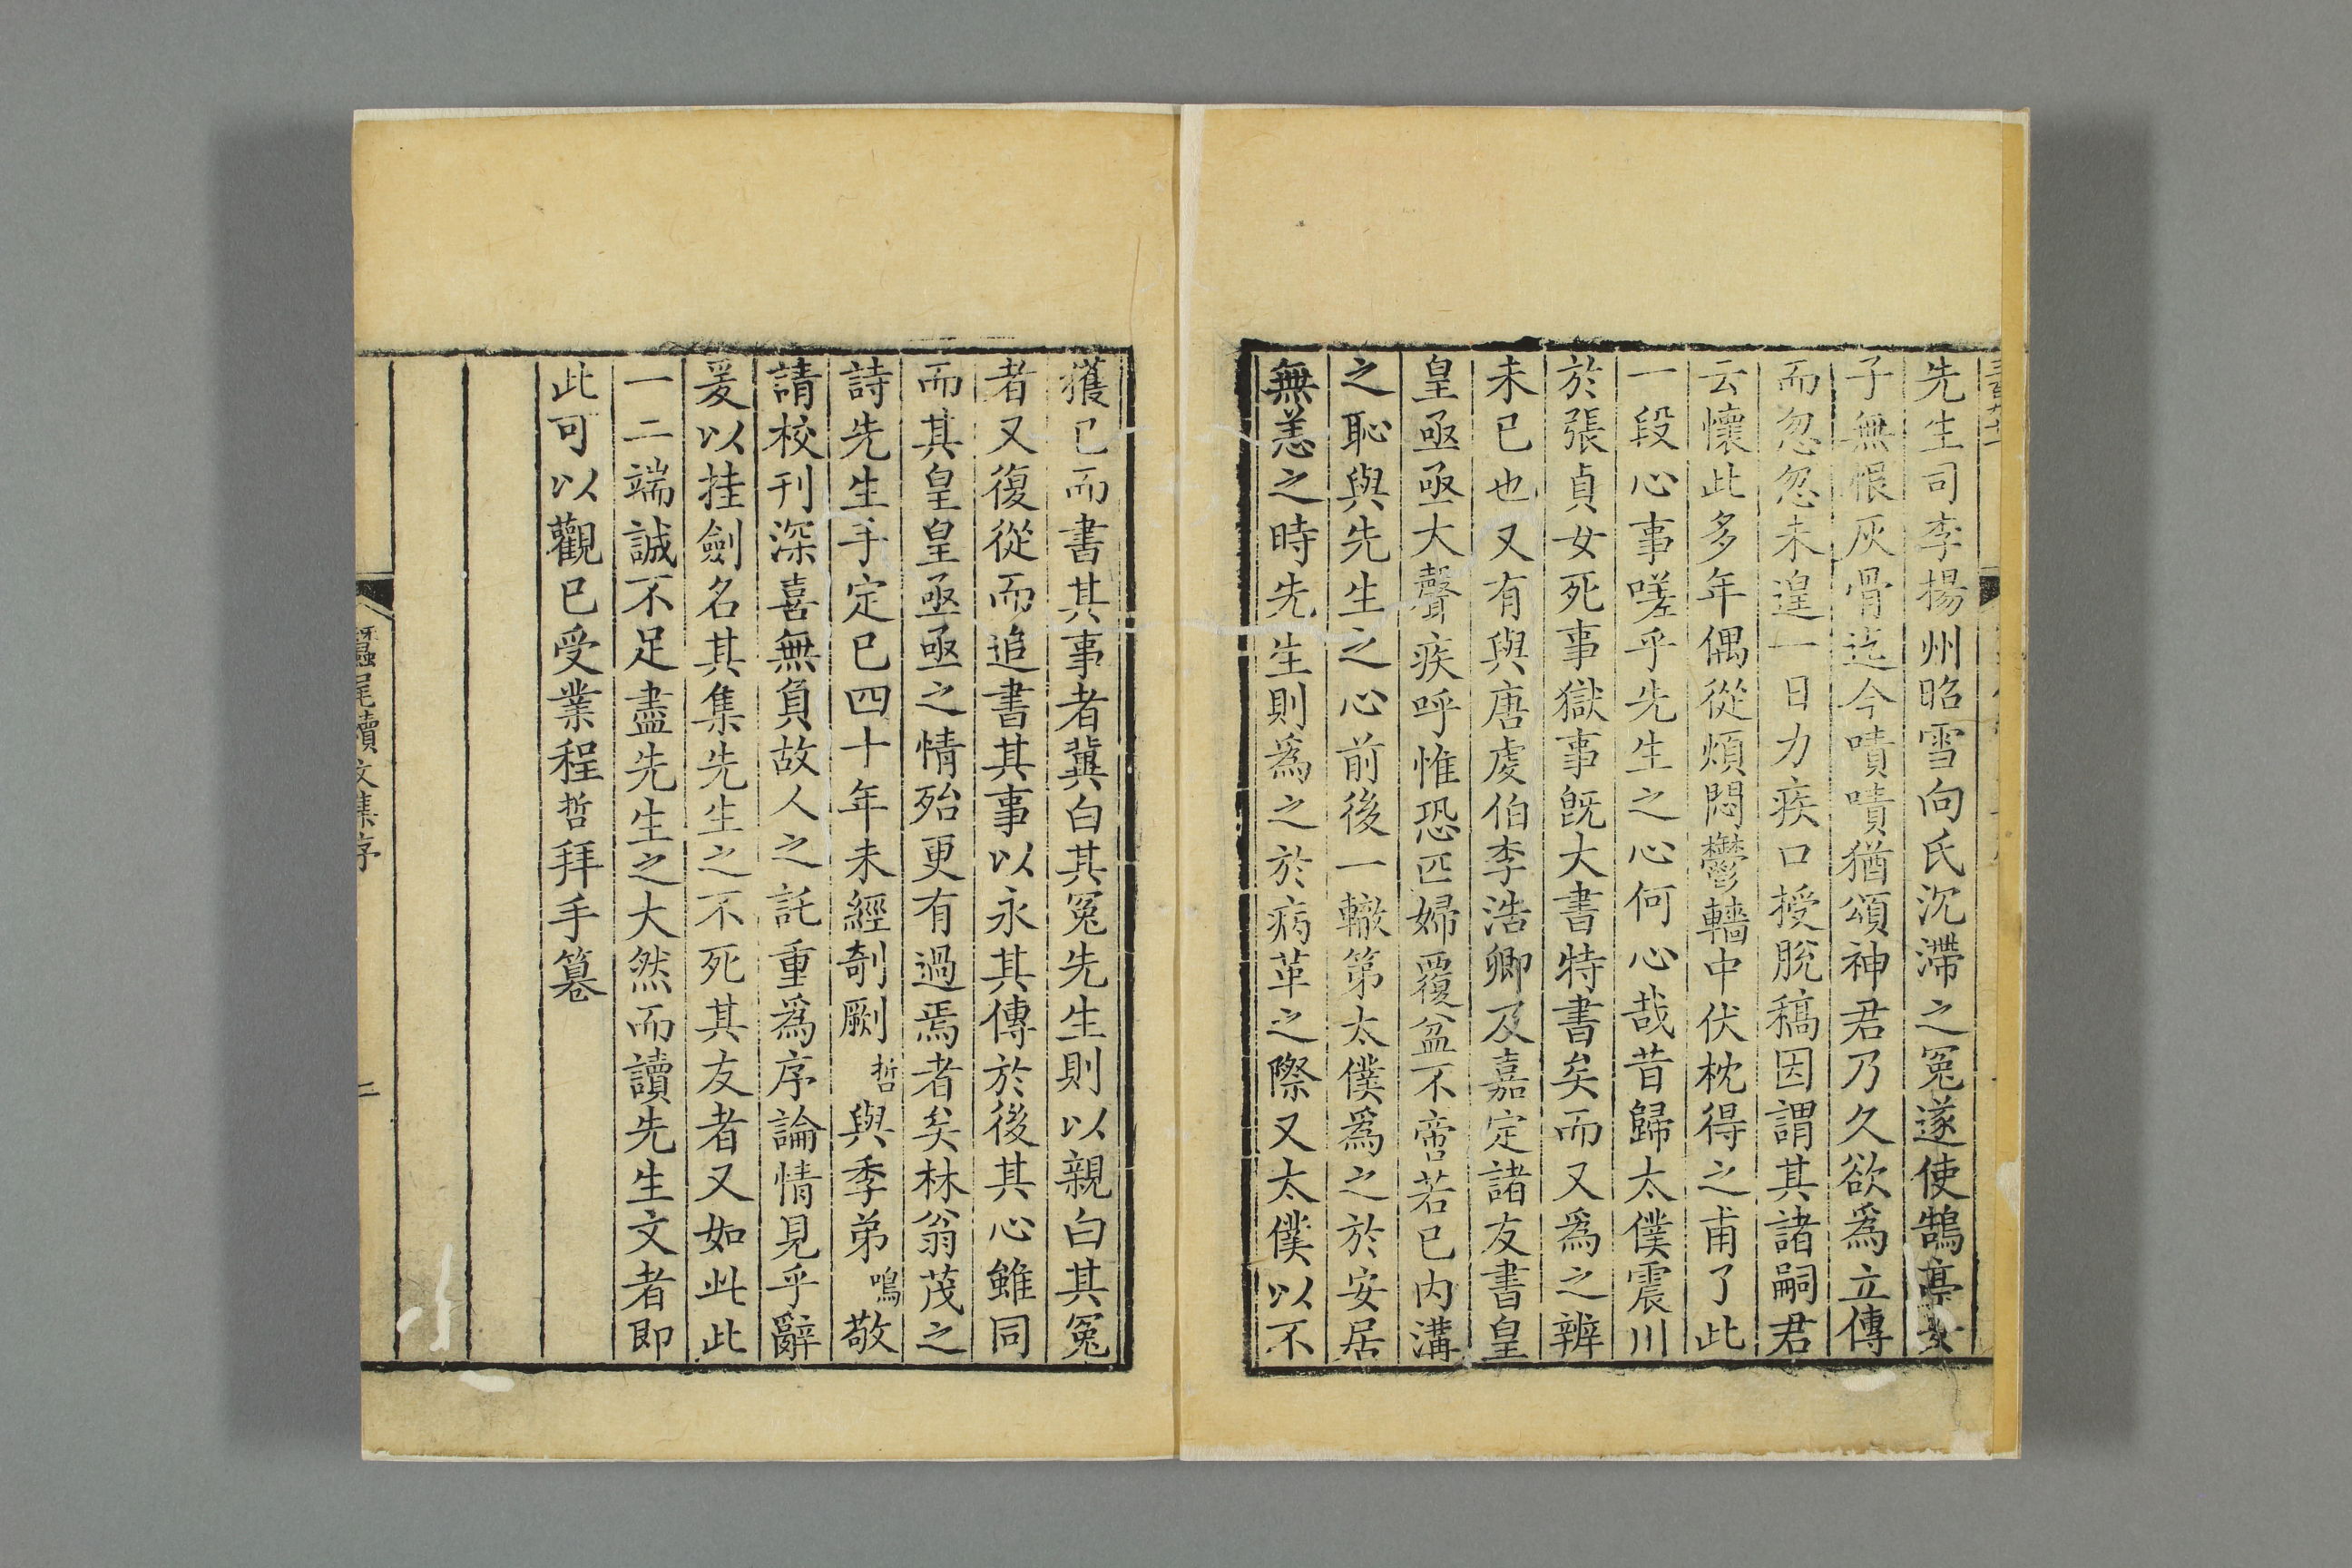 先生司李揚州昭雪向氏沉滯之冤遂使鵠亭女
子無恨灰骨迄今嘖嘖猶頌神君乃久欲爲立傳
而忽忽未遑一日力疾口授脫稿因謂其諸嗣君
云懷此多年偶從煩悶鬱轖中伏枕得之甫了此
一段心事嗟乎先生之心何心哉昔歸太僕震川
於張貞女死事獄事旣大書特書矣而又爲之辨
未已也又有與唐虔伯李浩卿及嘉定諸友書皇
皇亟亟大聲疾呼惟恐匹婦覆盆不啻若已內溝
之恥與先生之心前後一轍第太僕爲之於安居
無恙之時先生則爲之於病革之際又太僕以不
獲已而書其事者冀白其冤先生則以親白其冤
者又復從而追書其事以永其傳於後其心雖同
而其皇皇亟亟之情殆更有過焉者矣林翁茂之
詩先生手定已四十年未經剞劂哲與季弟鳴敬
請校刊深喜無負故人之託重爲序論情見乎辭
爰以挂劍名其集先生之不死其友者又如此此
一二端誠不足盡先生之大然而讀先生文者即
此可以觀已受業程哲拜手篹
蠶尾續文集序
二